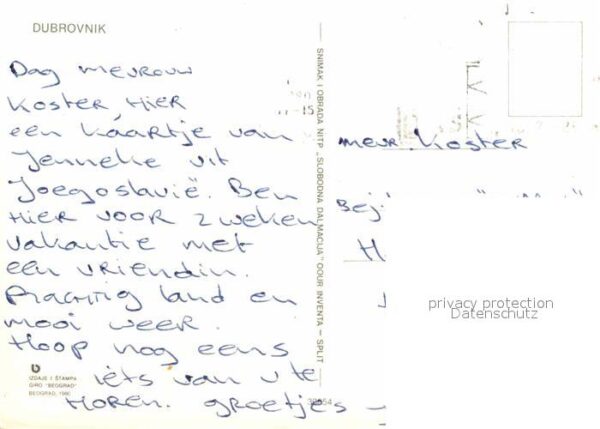 DUBROVNIK
Dag mevrouw
Koster, Hier
een kaartje van
Jenneke uit
Joegoslavië. Ben
Hier voor 2 weken
vakantie met
een vriendin.
Prachtig land en
mooi weer.
Hoop nog eens
iets van u te
Horen. groetjes –
IZDAJE I ŠTAMPA
GIRO "BEOGRAD"
SNIMAK I OBRADA NITP „SLOBODNA DALMACIJA" OOUR INVENTA – SPLIT
mevr. Koster
Bej
H
privacy protection
Datenschutz